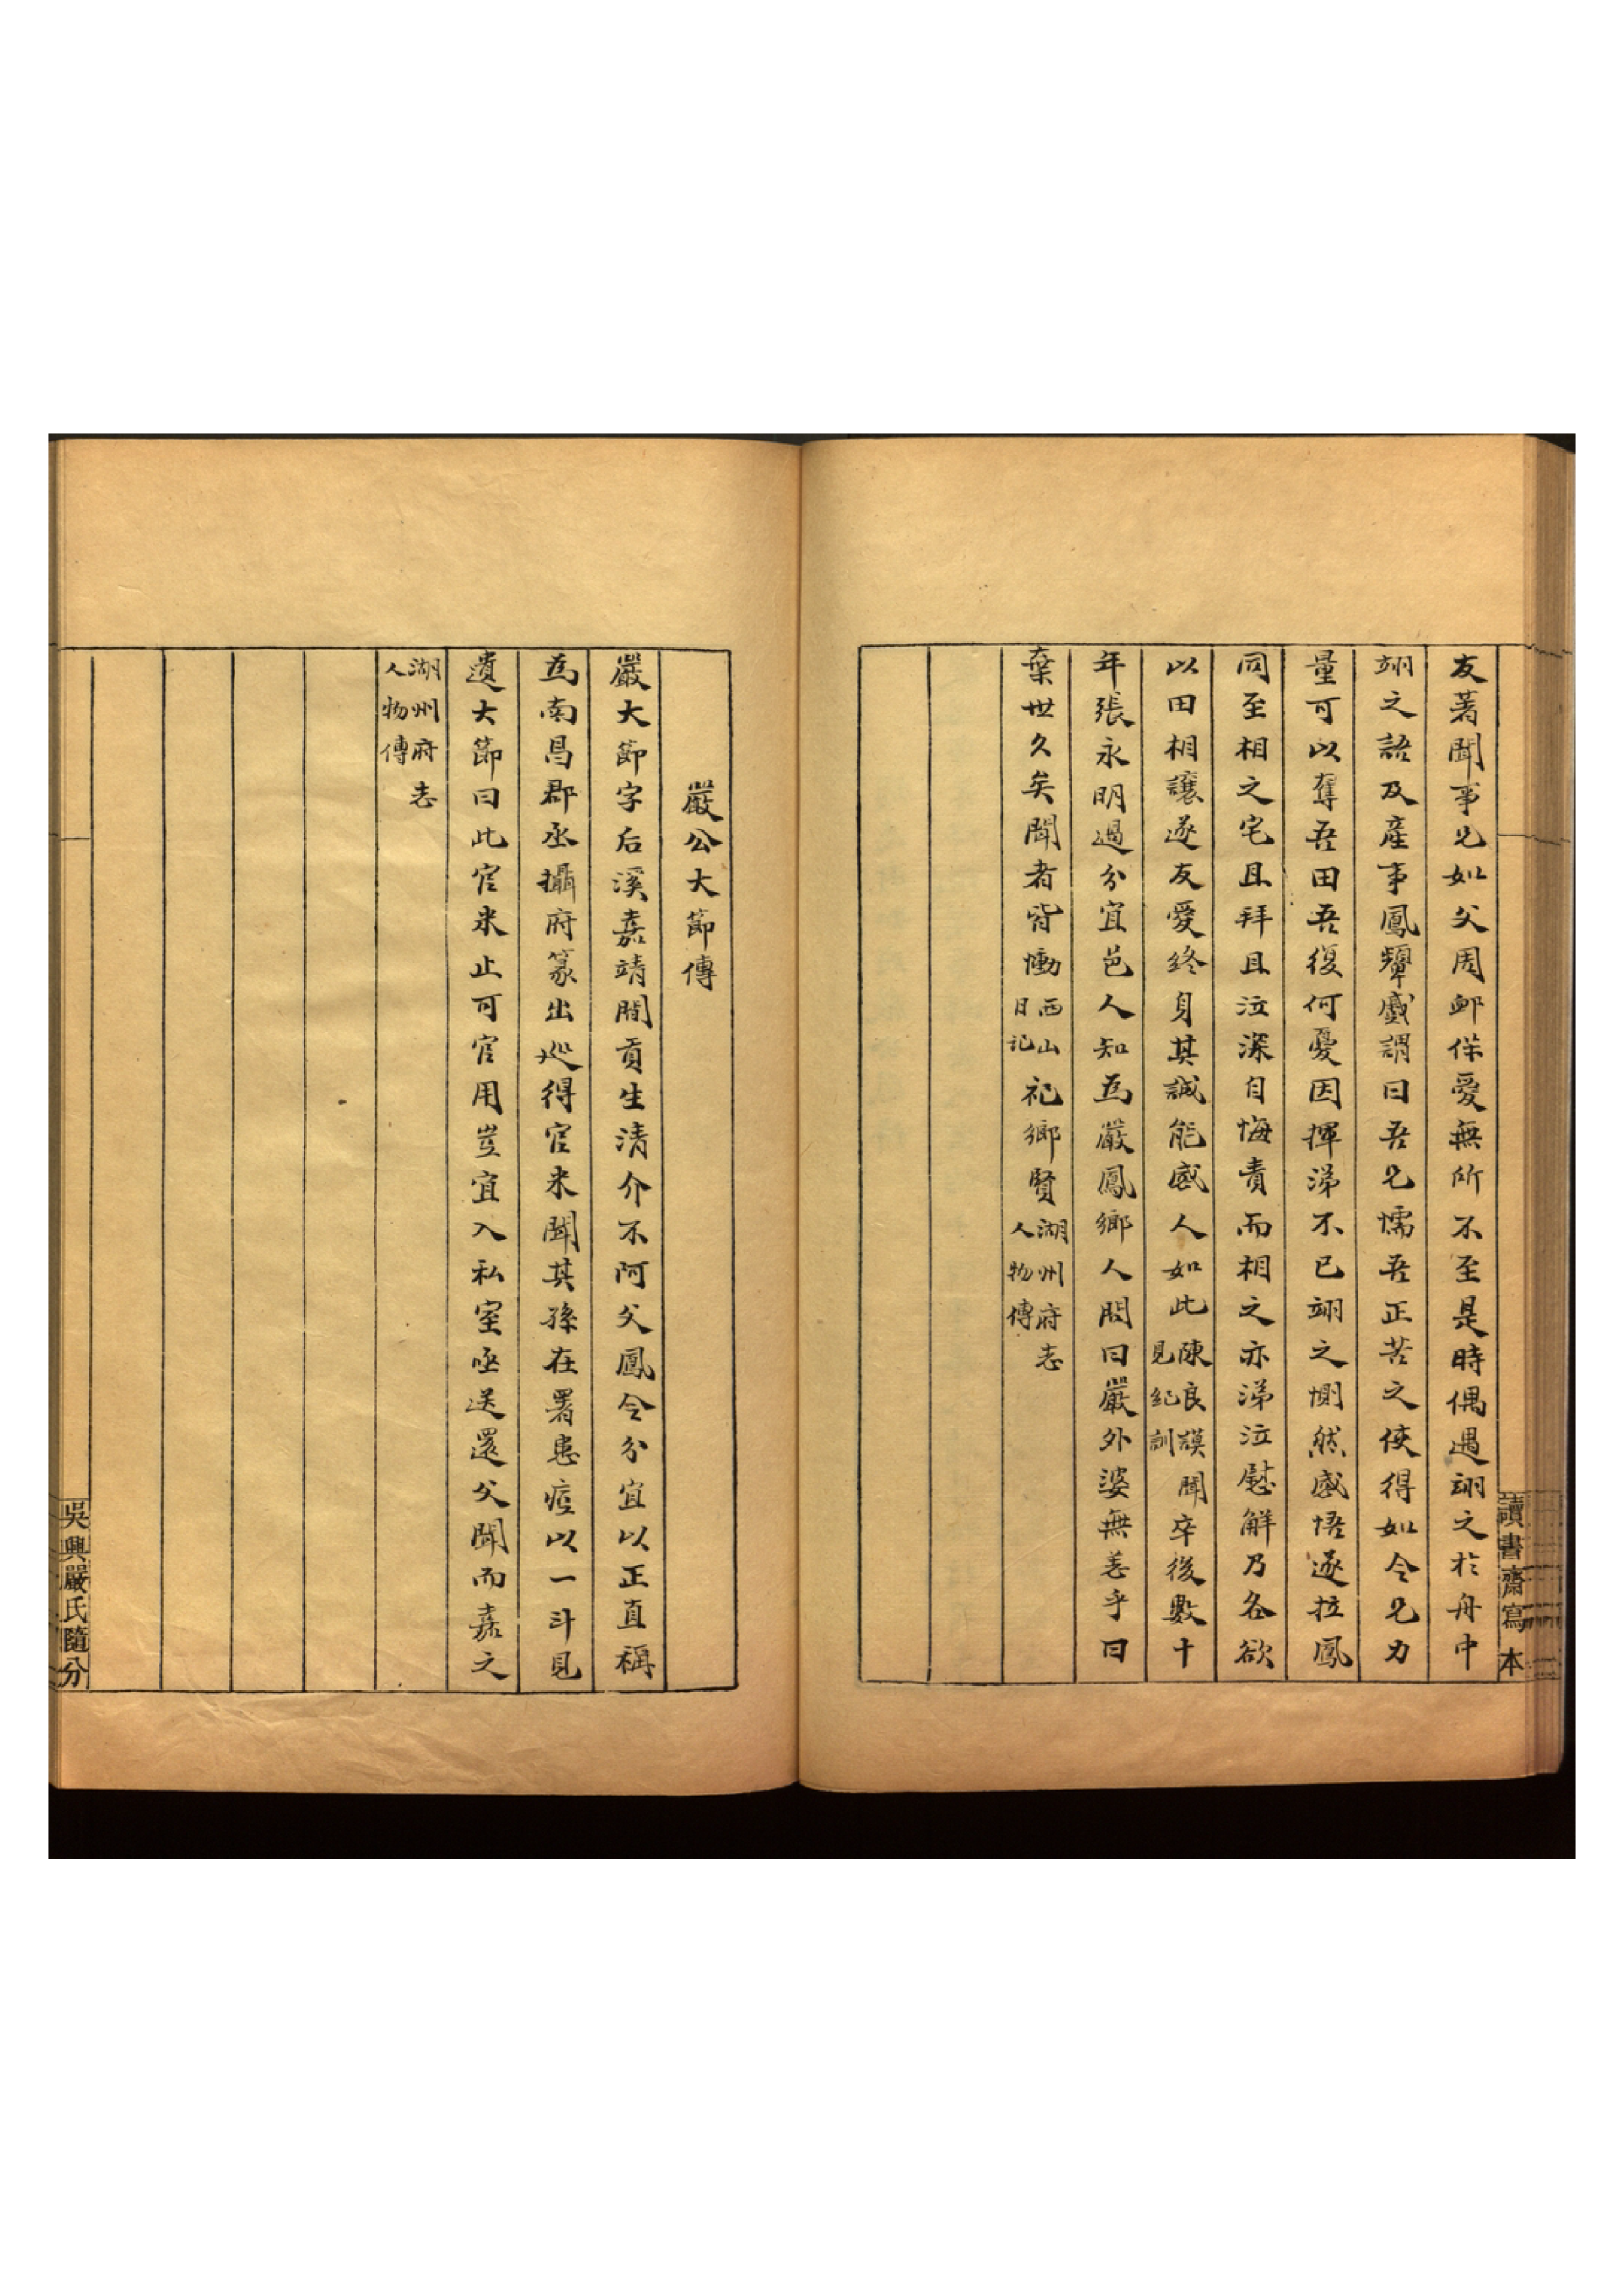 讀書齋寫本
友著聞事兄如父周卹保愛無所不至是時偶遇翊之於舟中
翊之語及產事鳳顰蹙謂曰吾兄懦吾正苦之使得如令兄力
量可以奪吾田吾復何憂因揮涕不已翊之惻然感悟遂拉鳳
同至相之宅且拜且泣深自悔責而相之亦涕泣慰解乃各欲
以田相讓遂友愛終身其誠能感人如此陳良謨見紀訓聞卒後數十
年張永明過分宜邑人知為嚴鳳鄉人問曰嚴外婆無恙乎曰
棄世久矣聞者皆慟西山日記祀鄉賢湖州府志人物傳
嚴公大節傳
嚴大節字后溪嘉靖間貢生清介不阿父鳳令分宜以正直稱
為南昌郡丞攝府篆出巡得官米聞其孫在署患痘以一斗見
遺大節曰此官米止可官用豈宜入私室亟送還父聞而嘉之
湖州府志人物傳
吳興嚴氏隨分